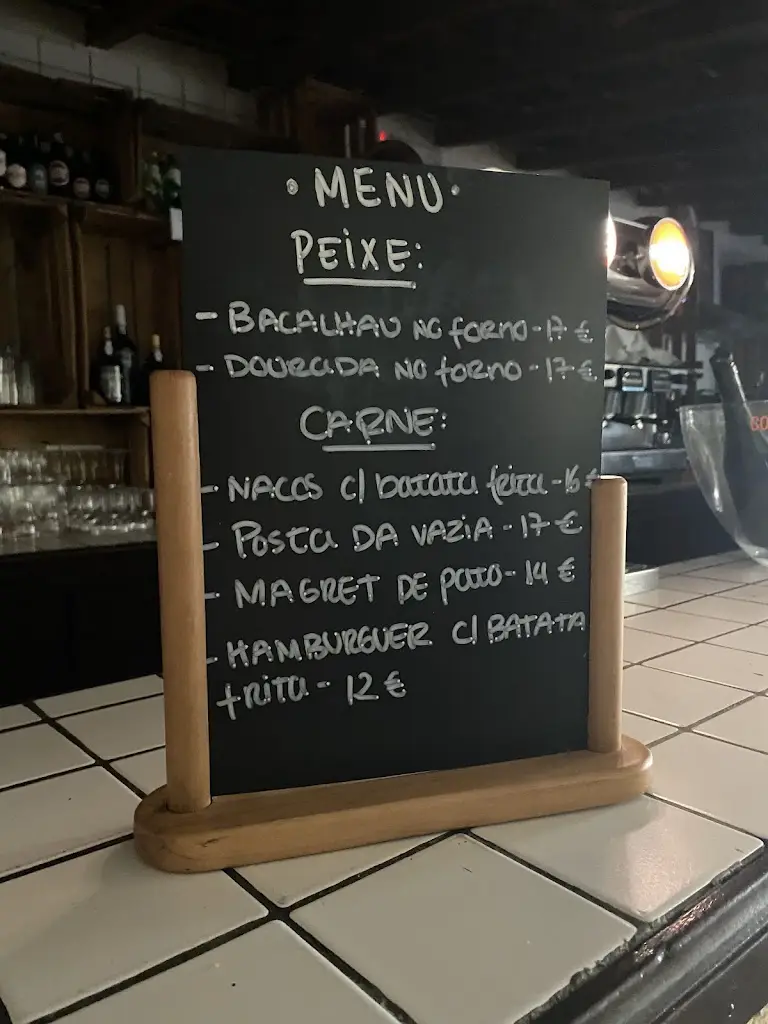 • MENU •
PEIXE:
- BACALHAU NO forno - 17 €
- DOURADA NO forno - 17 €
CARNE:
- NACOS c/ batata frita - 16 €
- Posta DA VAZIA - 17 €
- MAGRET DE pato - 14 €
- HAMBURGUER c/ BATATA
frita - 12 €